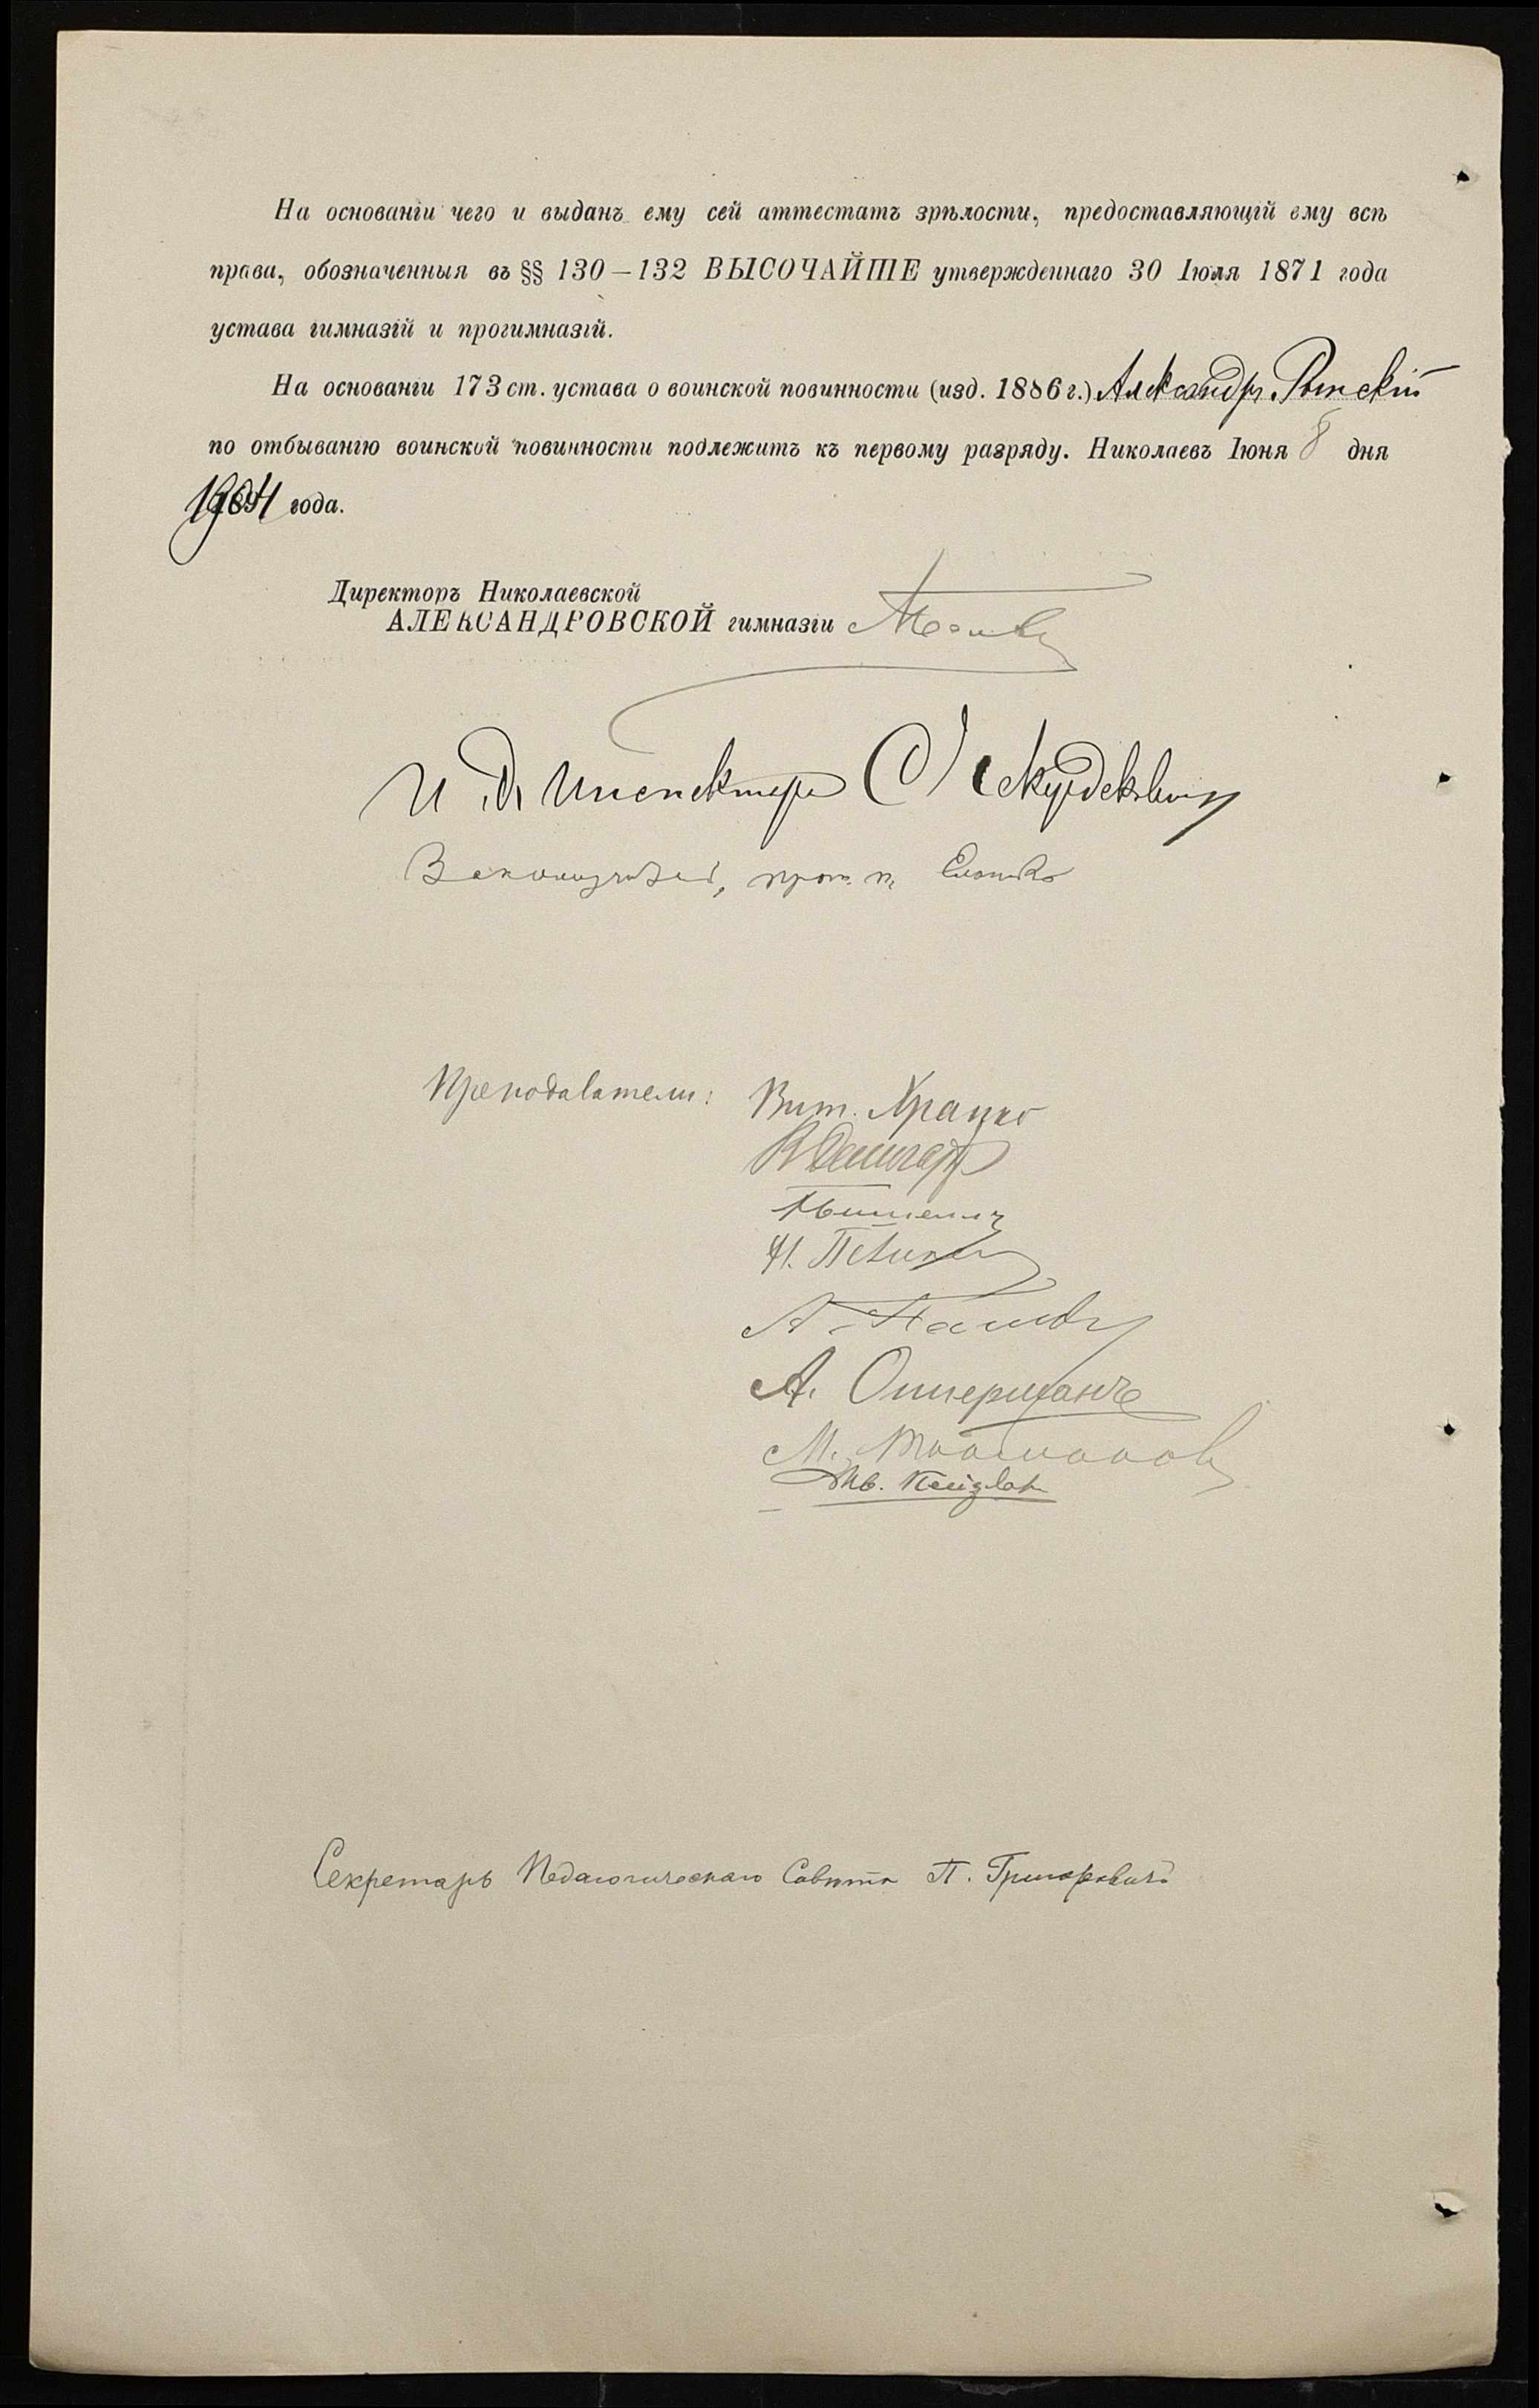 На основаніи чего и выданъ ему сей аттестатъ зрѣлости, предоставляющій ему всѣ
права, обозначенныя въ §§ 130—132 ВЫСОЧАЙШЕ утвержденнаго 30 Іюля 1871 года
устава гимназій и прогимназій.
На основаніи 173 ст. устава о воинской повинности (изд. 1886 г.) Александръ
по отбыванію воинской повинности подлежитъ къ первому разряду. Николаевъ Іюня 8 дня
1904 года.
Директоръ Николаевской
АЛЕКСАНДРОВСКОЙ гимназіи
И. Д. Инспектора
Законоучитель, прот.
Преподаватели: Вит.
Н.
А.
А. Оттерманъ
М.
Ив.
Секретарь Педагогическаго Совѣта П. Григоровичъ